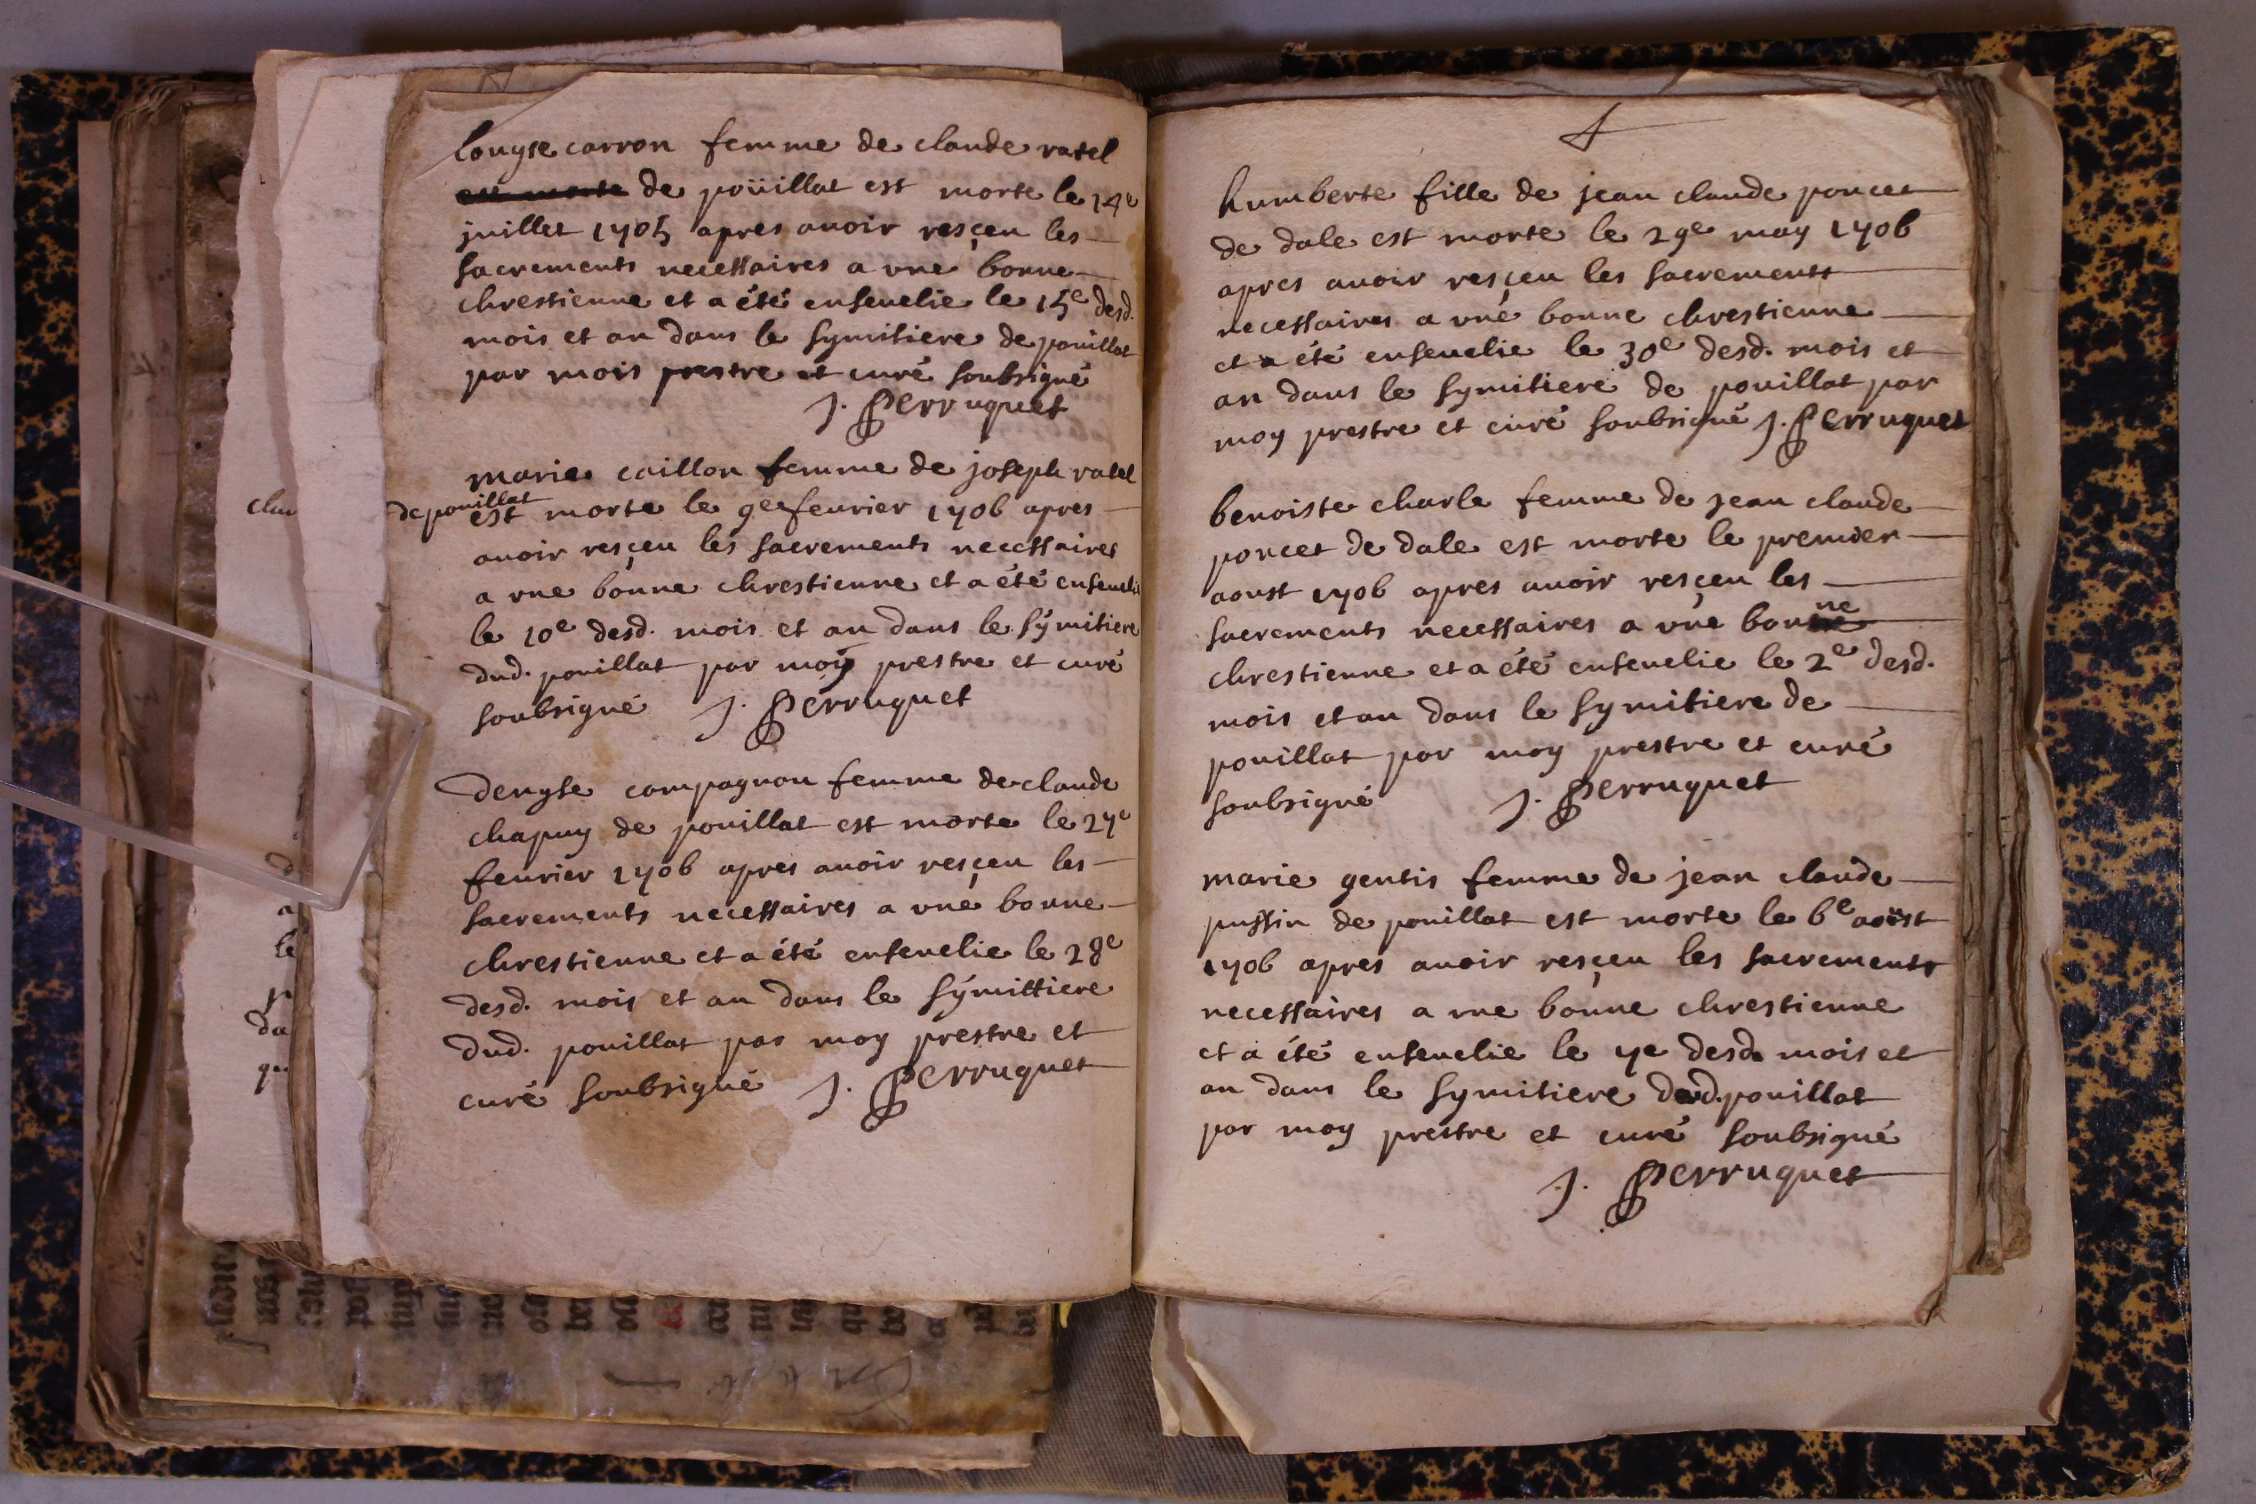 louyse carron femme de claude ratel
est morte de poüillat est morte le 14e
juillet 1705 apres auoir resçeu les
sacrements necessaires a vne bonne
chrestienne et a été enseuelie le 15e desd.
mois et an dans le symitiere de pouillat
par mois prestre et curé soubsigné
J. Perruquet
marie caillon femme de joseph ratel
de pouillat est morte le 9e feurier 1706 apres
auoir resçeu les sacrements necessaires
a vne bonne chrestienne et a été enseueli
le 10e desd. mois et an dans le symitiere
dud. pouillat par moy prestre et curé
soubsigné J. Perruquet
denyse compagnon femme de claude
chapuy de pouillat est morte le 27e
feurier 1706 apres auoir resçeu les
sacrements necessaires a vne bonne
chrestienne et a été enseuelie le 28e
desd. mois et an dans le symittiere
dud. pouillat par moy prestre et
curé soubsigné J. Perruquet
humberte fille de jean claude poncet
de dale est morte le 29e may 1706
apres auoir resçeu les sacrements
necessaires a vne bonne chrestienne
et a été enseuelie le 30e desd. mois et
an dans le symitiere de pouillat par
moy prestre et curé soubsigné J. Perruquet
benoiste charle femme de jean claude
poncet de dale est morte le premier
aoust 1706 apres auoir resçeu les
sacrements necessaires a vne bonne
chrestienne et a été enseuelie le 2e desd.
mois et an dans le symitiere de
pouillat par moy prestre et curé
soubsigné J. Perruquet
marie gentis femme de jean claude
pussin de pouillat est morte le 6e aoust
1706 apres auoir resçeu les sacrements
necessaires a vne bonne chrestienne
et a été enseuelie le 7e desd. mois et
an dans le symitiere dud. pouillat
par moy prestre et curé soubsigné
J. Perruquet